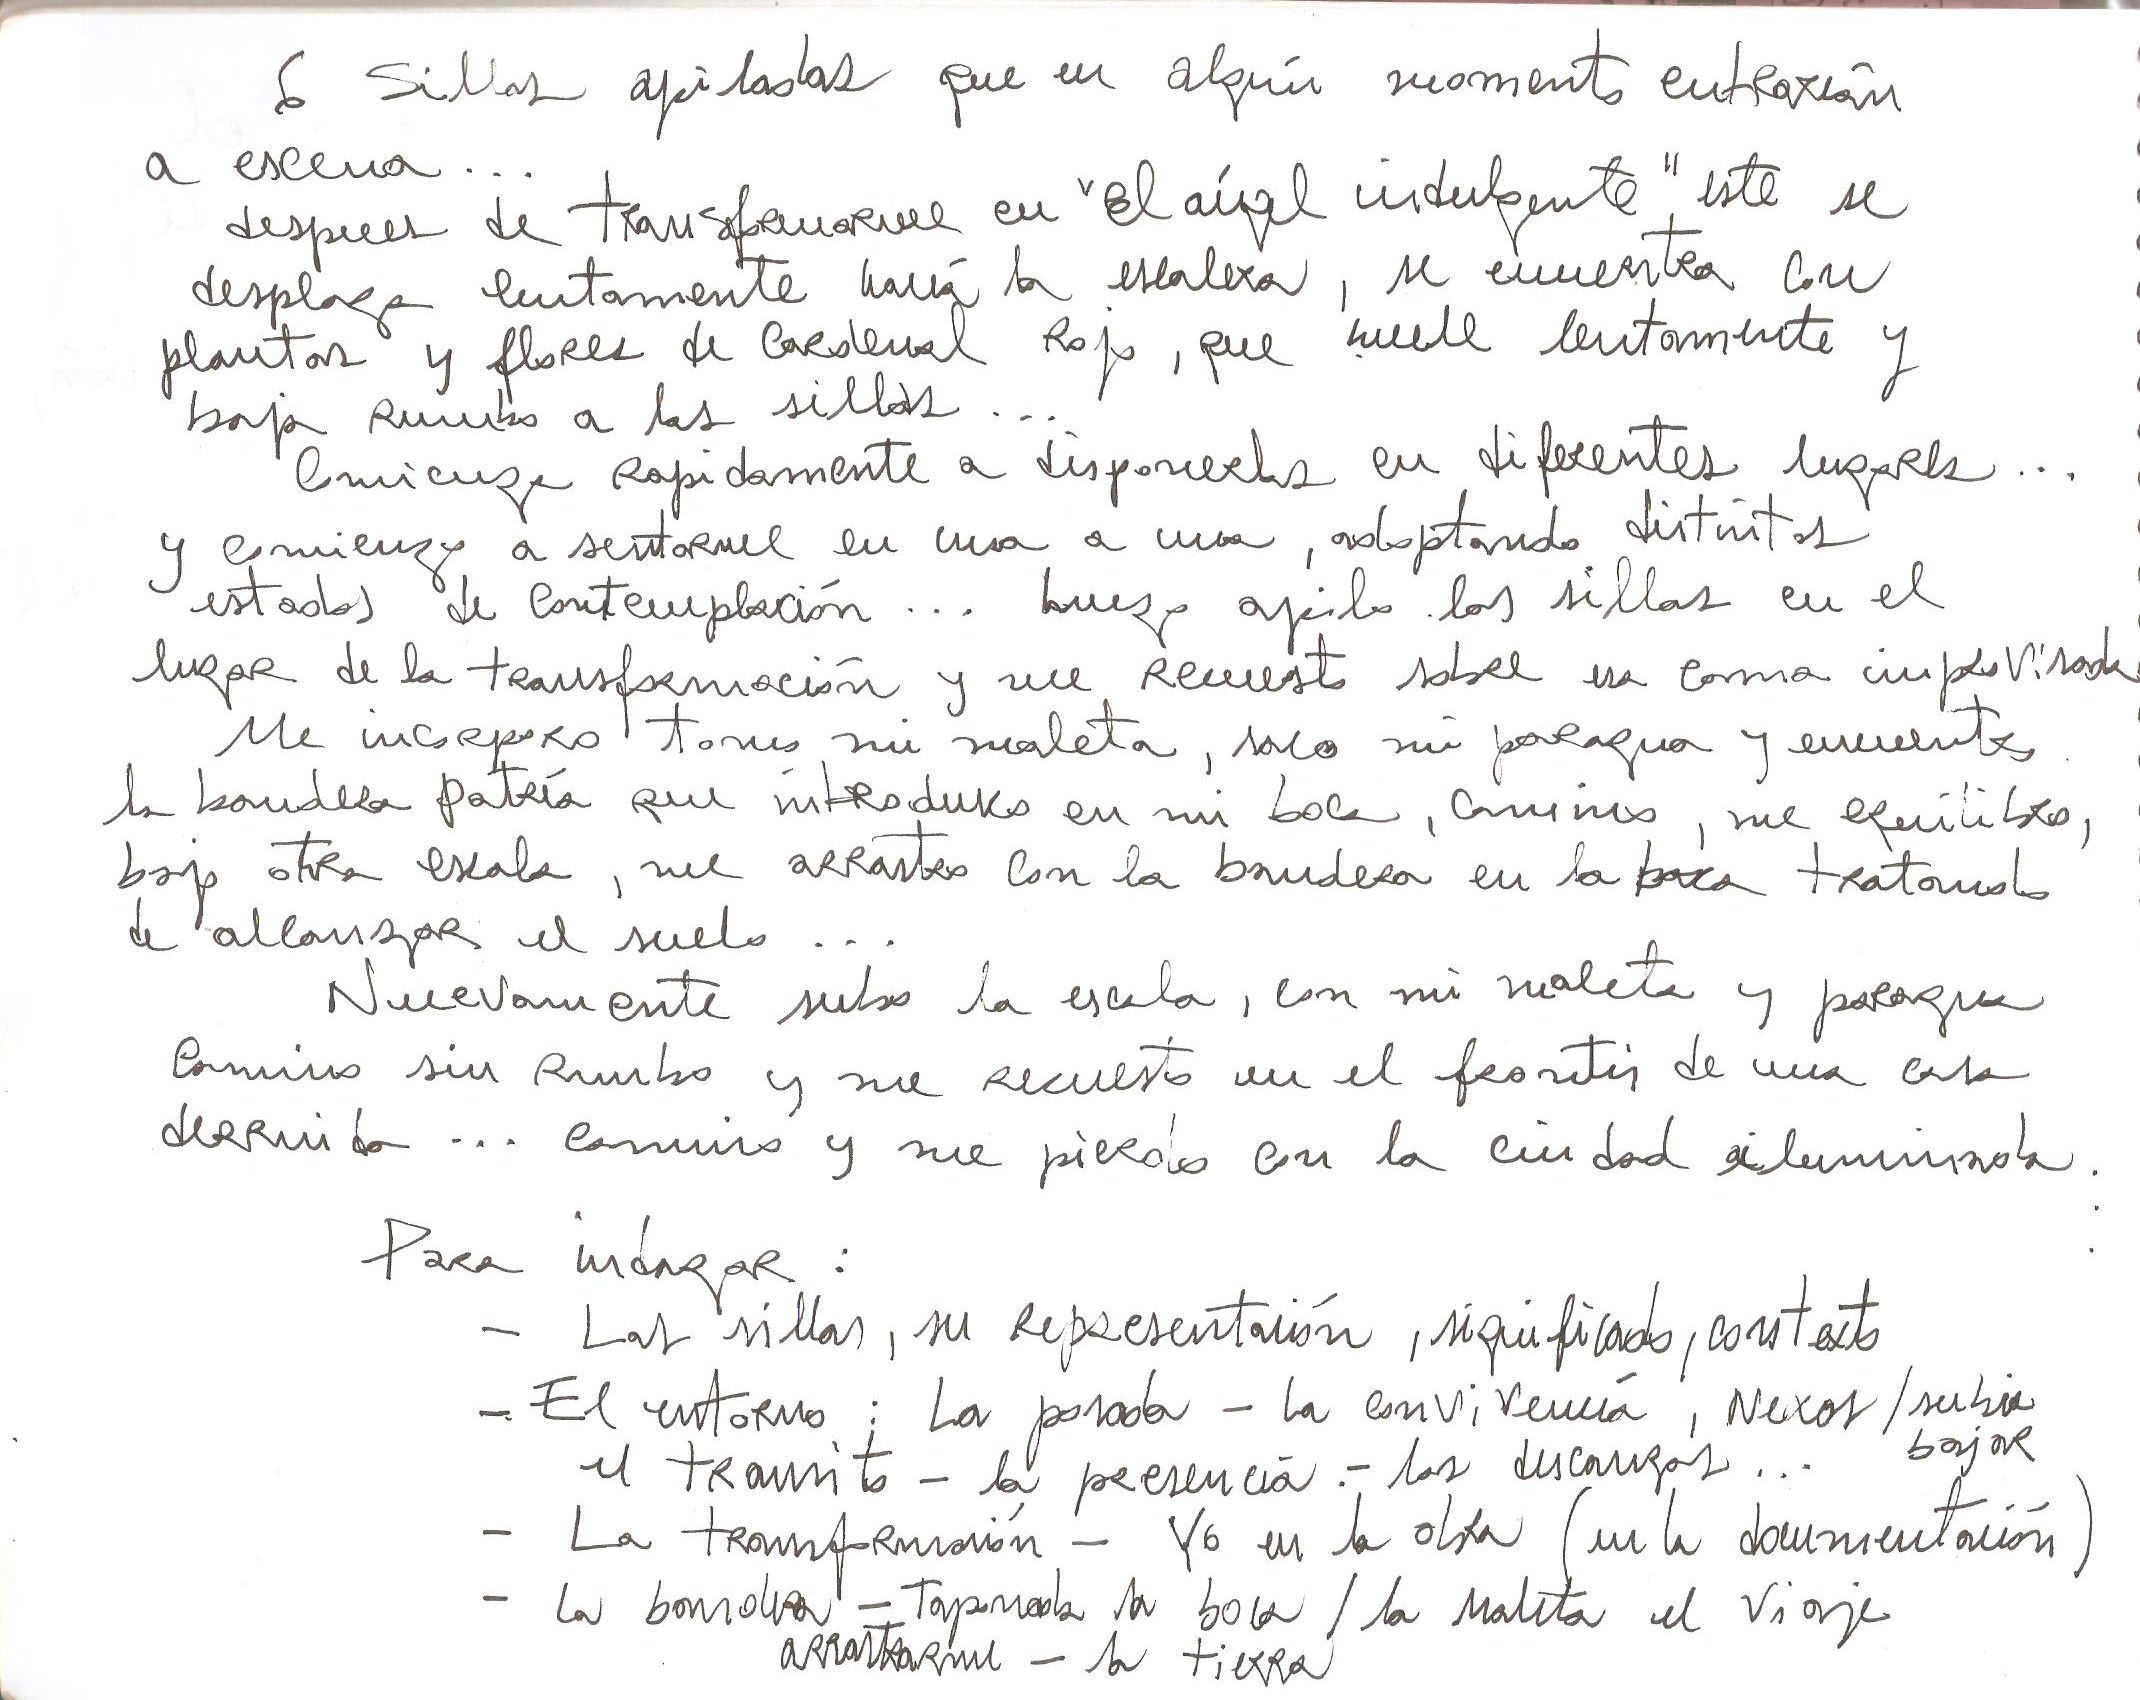 6 Sillas apiladas que en algún momento entrarán
a escena ...
despues de transformarme en "El ángel indulgente" este se
desplaza lentamente haciá la escalera, se encuentra con
plantas y flores de Cardenal Rojo, que huele lentamente y
baja rumbo a las sillas ...
Comienza rapidamente a disponerlas en diferentes lugares ...
y comienzo a sentarme en una a una, adoptando distintos
estados de contemplación ... luego apilo las sillas en el
lugar de la transformación y me recuesto sobre esa cama improvisada
Me incorporo tomo mi maleta, saco mi paragua y encuentro
la bandera patria que introdusco en mi boca, camino, me equilibro,
bajo otra escala, me arrastro con la bandera en la boca tratando
de alcanzar el suelo ...
Nuevamente subo la escala, con mi maleta y paragua
Camino sin rumbo y me recuesto en el frontis de una casa
derruida ... camino y me pierdo con la ciudad iluminada.
Para indagar :
- Las sillas, su representación, significado, contexto
- El entorno : La posada - la convivencia, Nexos / subir
bajar
el transito - la presencia - los descanzos ...
- La transformación - Yo en la obra (en la documentación)
- La bandera - Taponada la boca / la maleta el viaje
arrastrarme - la tierra